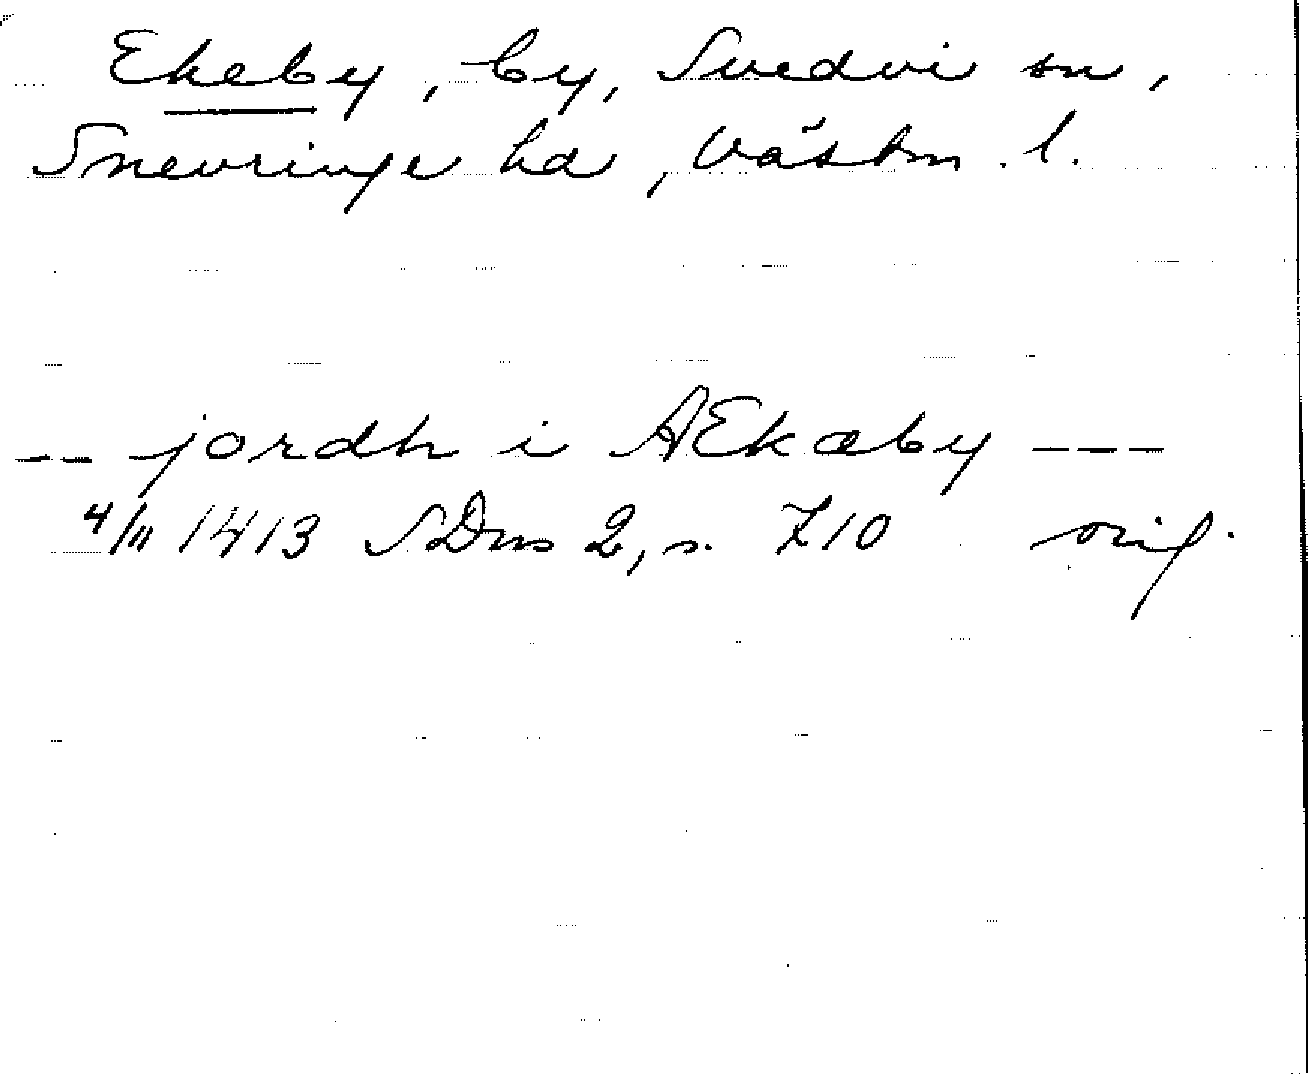 Ekeby, by, Svedvi sn,
Snevringe hd, Västm. l.
-- jordh i AEkæby ---
4/11 1413 SDns 2, s. 710 orig.